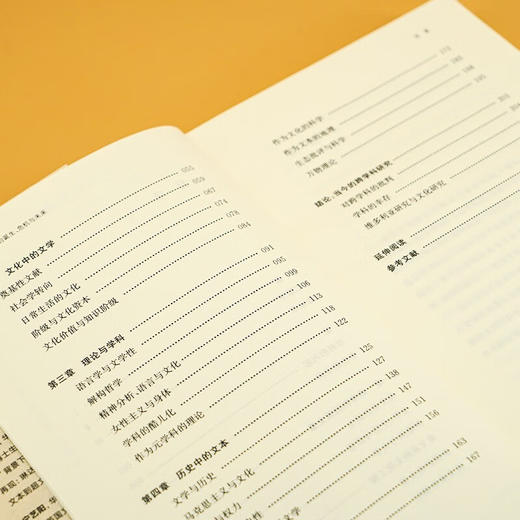 诞生、危机与未来
文化中的文学 055
奠基性文献 059
社会学转向 067
日常生活的文化 074
阶级与文化资本 078
文化价值与知识阶级 084
第三章 理论与学科 091
语言学与文学性 095
解构哲学 099
精神分析、语言与文化 106
女性主义与身体 113
学科的酷儿化 118
作为元学科的理论 122
第四章 历史中的文本 125
文学与历史 127
马克思主义与文化 138
与权力 147
性 151
文学 156
163
167
目 录
作为文化的科学
作为文本的地理 185
生态批评与科学 188
万物理论 195
结论:当今的跨学科研究
对跨学科的批判
学科的幸存
维多利亚研究与文化研究
延伸阅读
参考文献
士生
背景下
再现:
文本到超文
宁艺阳,华